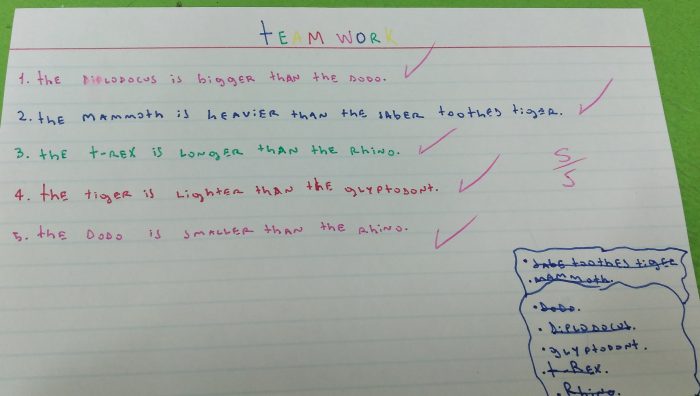 tEAM WORK
1. the DiPLODOCUS is bigger than the DODO.
2. the MAMMOth is HEAViER thAN the SABER toothes tiger.
3. the t-REX is LONGER thAN the Rhino.
4. the tiger is Lighter thAN the gLYPtODONt.
5. the DODO is SMALLER thAN the Rhino.
5/5
• SABE toothes tigER
• MAMMoth.
• DoDo.
• DiPLODOCUS.
• gLYPtODONt.
• t-REX.
• Rhino.